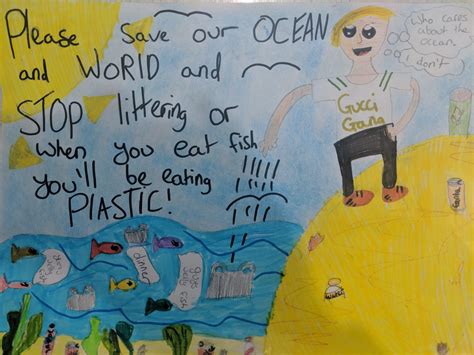 Please save our OCEAN
and WORID and
STOP littering or
when you eat fish
you'll be eating
PLASTIC!
Who cares
about the
ocean
I don't
Gucci
Gang
dinner